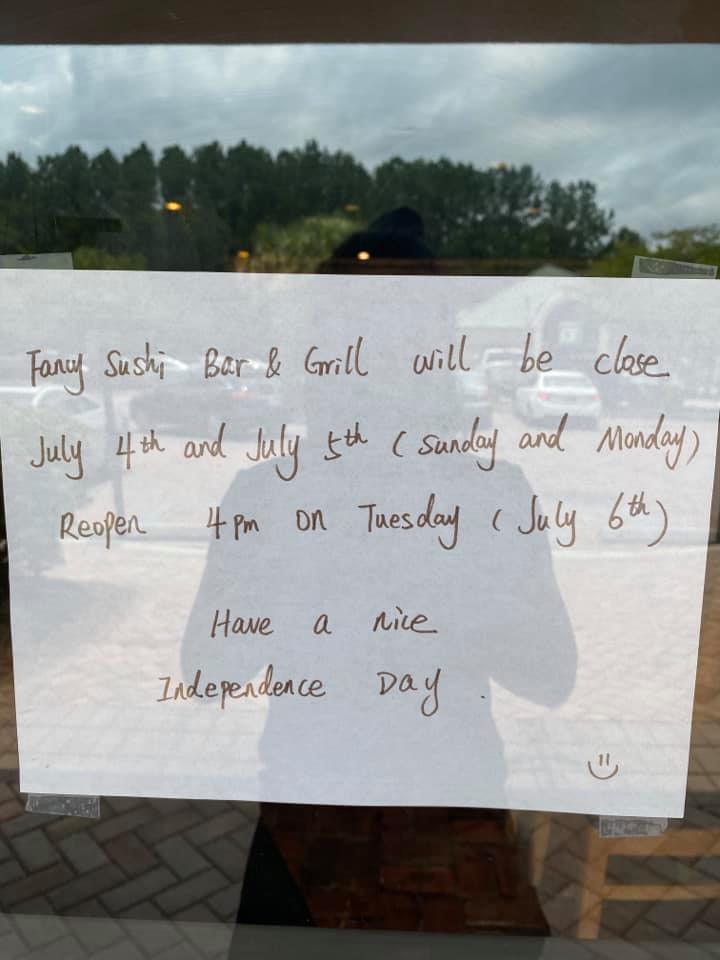 Fancy Sushi Bar & Grill will be close
July 4th and July 5th (Sunday and Monday)
Reopen 4pm on Tuesday (July 6th)
Have a nice
Independence Day.